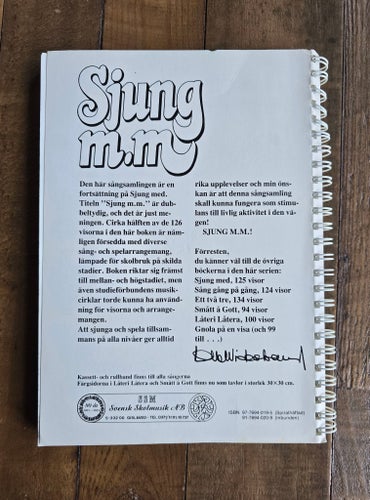 Sjung
m.m
Den här sångsamlingen är en
fortsättning på Sjung med.
Titeln "Sjung m.m." är dub-
beltydig, och det är just me-
ningen. Cirka hälften av de 126
visorna i den här boken är näm-
ligen försedda med diverse
sång- och spelarrangemang,
lämpade för skolbruk på skilda
stadier. Boken riktar sig främst
till mellan- och högstadiet, men
även studieförbundens musik-
cirklar torde kunna ha använd-
ning för visorna och arrange-
mangen.
Att sjunga och spela tillsam-
mans på alla nivåer ger alltid
rika upplevelser och min öns-
kan är att denna sångsamling
skall kunna fungera som stimu-
lans till livlig aktivitet i den vä-
gen!
SJUNG M.M.!
Förresten,
du känner väl till de övriga
böckerna i den här serien:
Sjung med, 125 visor
Sång gång på gång, 124 visor
Ett två tre, 134 visor
Smått å Gott, 94 visor
Låteri Låtera, 100 visor
Gnola på en visa (och 99
till . . .)
Kassett- och rullband finns till alla sångerna
Färgsidorna i Låteri Låtera och Smått å Gott finns nu som tavlor i storlek 30×30 cm.
SSM
Svensk Skolmusik AB